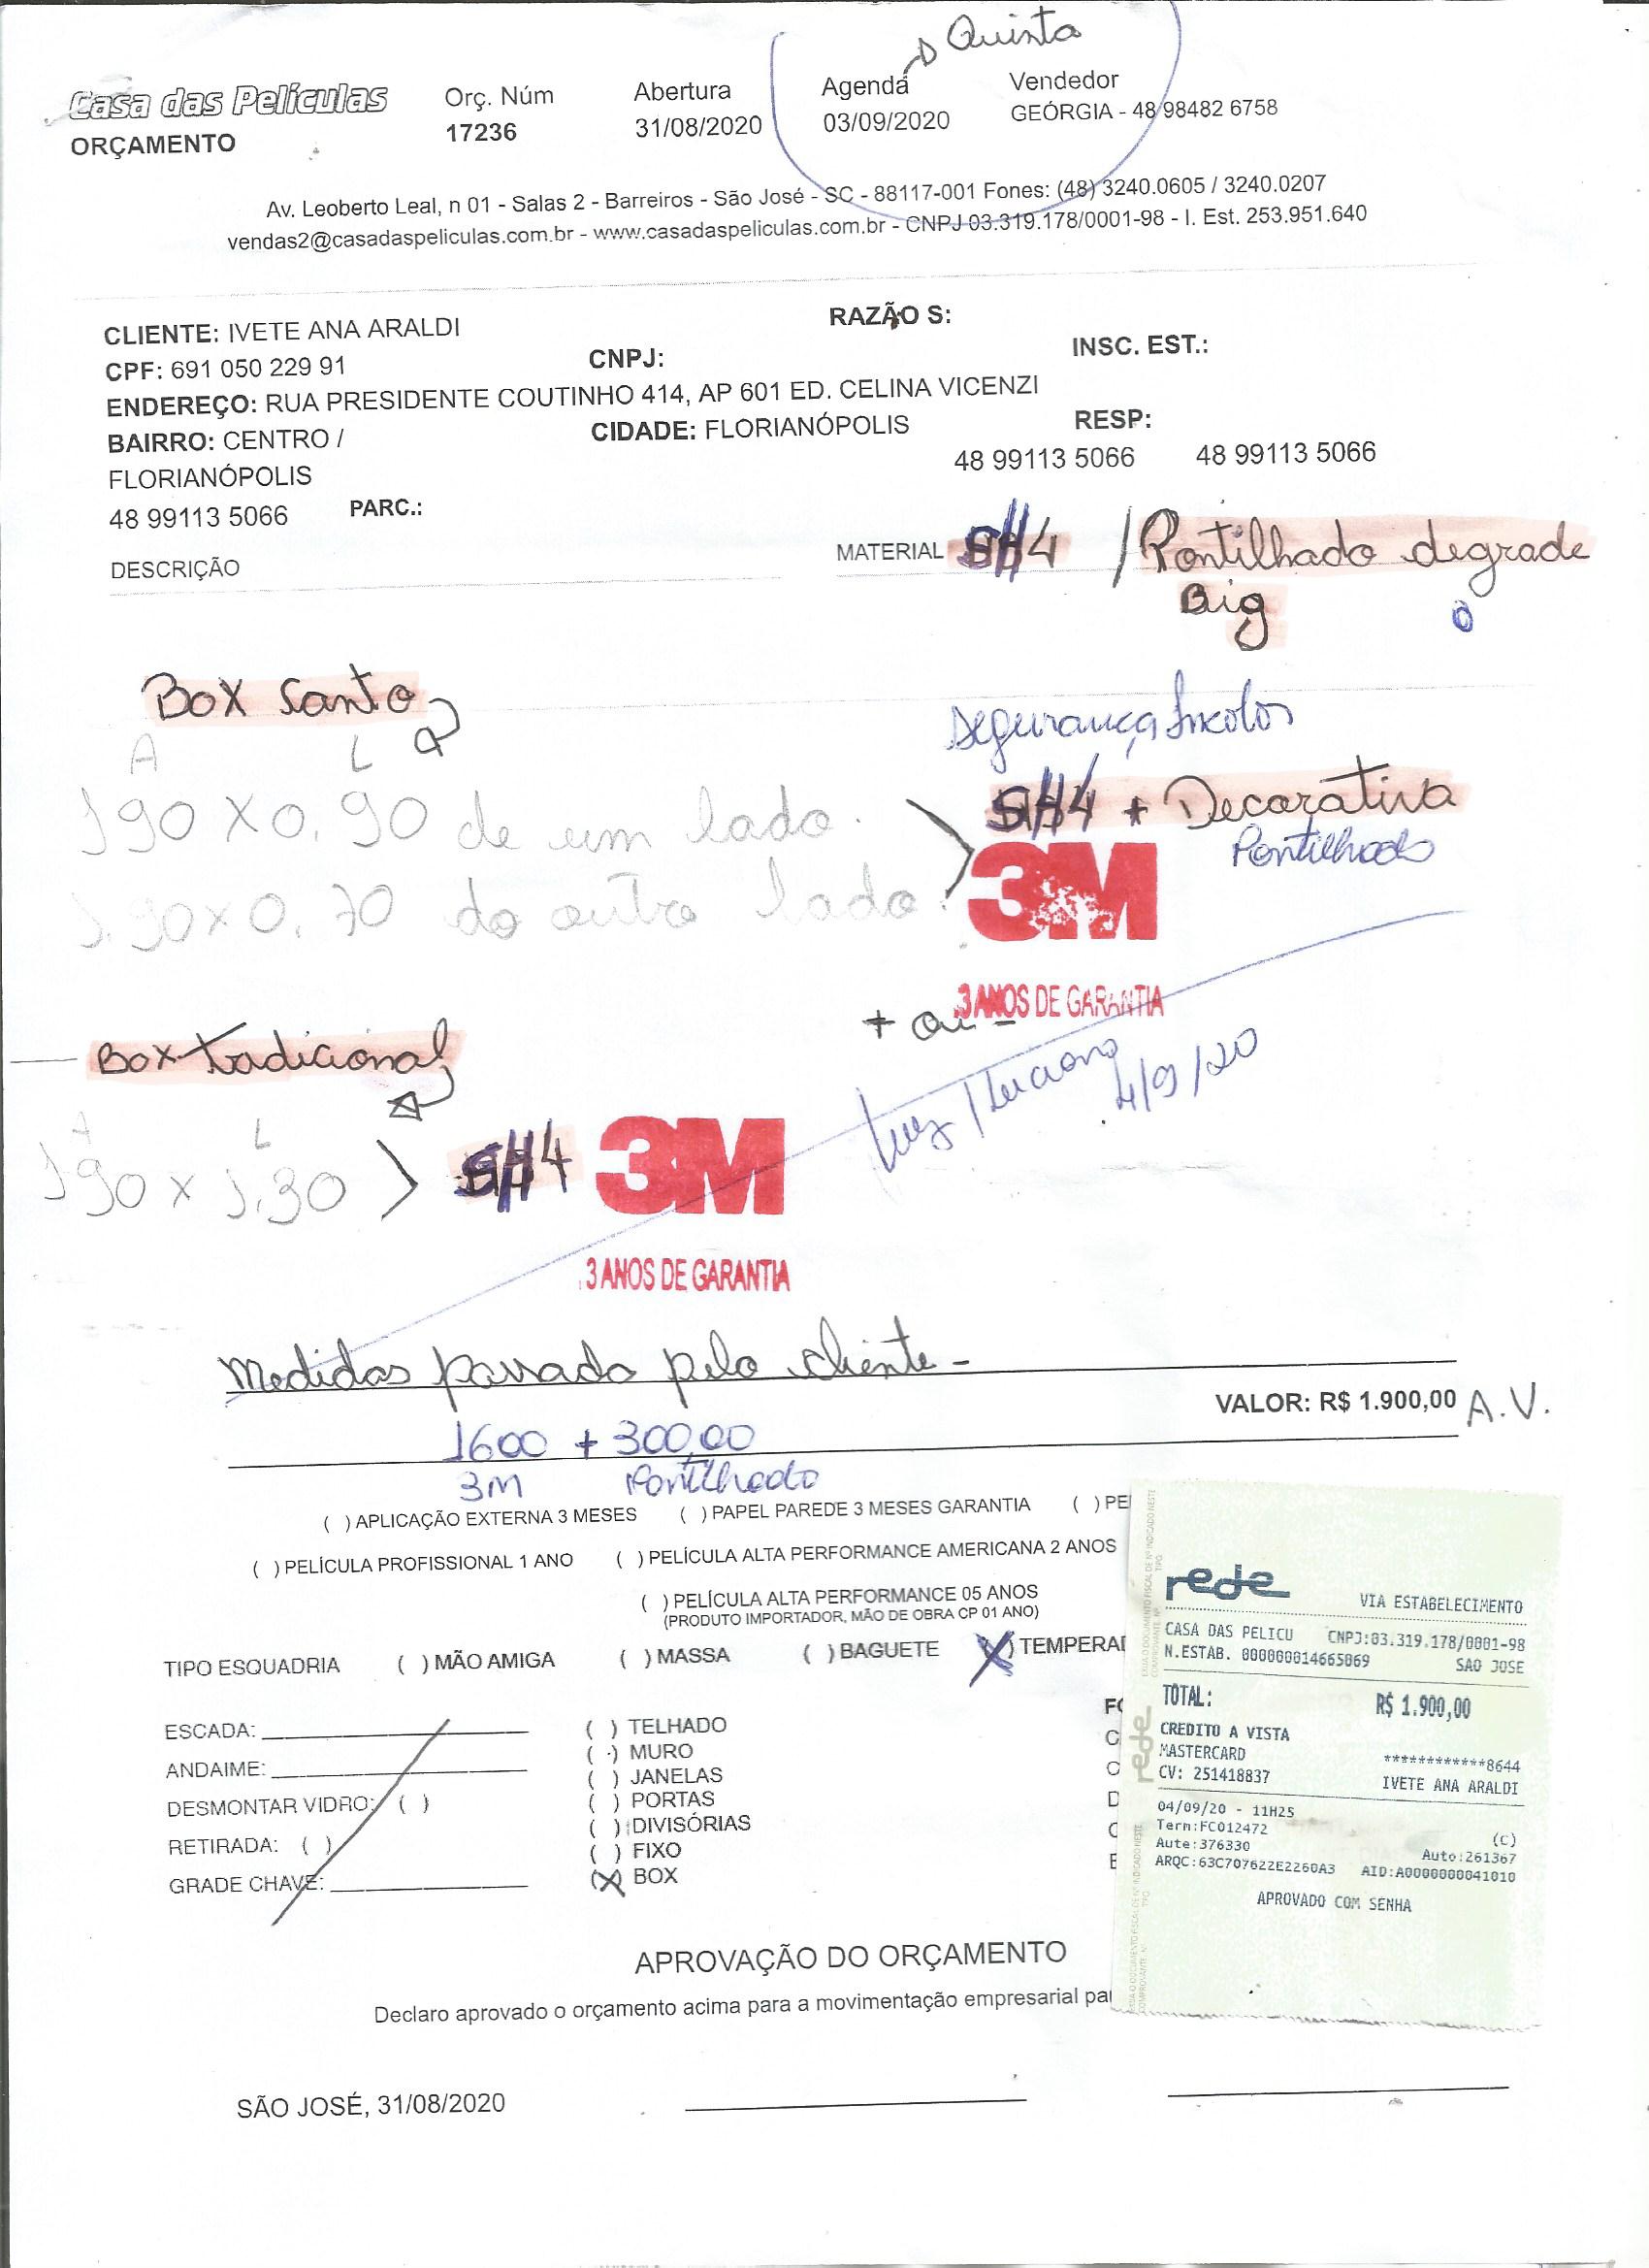 Quinta
Casa das Películas
ORÇAMENTO
Orç. Núm
17236
Abertura
31/08/2020
Agenda
03/09/2020
Vendedor
GEÓRGIA - 48 98482 6758
Av. Leoberto Leal, n 01 - Salas 2 - Barreiros - São José - SC - 88117-001 Fones: (48) 3240.0605 / 3240.0207
vendas2@casadaspeliculas.com.br - www.casadaspeliculas.com.br - CNPJ 03.319.178/0001-98 - I. Est. 253.951.640
CLIENTE: IVETE ANA ARALDI
RAZÃO S:
CPF: 691 050 229 91
CNPJ:
INSC. EST.:
ENDEREÇO: RUA PRESIDENTE COUTINHO 414, AP 601 ED. CELINA VICENZI
BAIRRO: CENTRO /
FLORIANÓPOLIS
CIDADE: FLORIANÓPOLIS
RESP:
48 99113 5066 48 99113 5066
48 99113 5066
PARC.:
DESCRIÇÃO
MATERIAL SH4 / Pontilhado degrade
Big
Box Canto
A L
190 X 0,90 de um lado.
1.90 x 0,70 do outro lado.
Segurança Incolor
SH4 + Decorativa
Pontilhado
3M
3 ANOS DE GARANTIA
+ ou -
Box tradicional
A L
190 x 1.30 > SH4
3M
3 ANOS DE GARANTIA
Luiz / Luciano
4/9/20
Medidas passada pelo cliente -
VALOR: R$ 1.900,00 A.V.
1600 + 300,00
3M Pontilhado
( ) APLICAÇÃO EXTERNA 3 MESES ( ) PAPEL PAREDE 3 MESES GARANTIA ( ) PE
( ) PELÍCULA PROFISSIONAL 1 ANO ( ) PELÍCULA ALTA PERFORMANCE AMERICANA 2 ANOS
( ) PELÍCULA ALTA PERFORMANCE 05 ANOS
(PRODUTO IMPORTADOR, MÃO DE OBRA CP 01 ANO)
TIPO ESQUADRIA ( ) MÃO AMIGA ( ) MASSA ( ) BAGUETE (X) TEMPERA
ESCADA:
ANDAIME:
DESMONTAR VIDRO: ( )
RETIRADA: ( )
GRADE CHAVE:
( ) TELHADO
( ) MURO
( ) JANELAS
( ) PORTAS
( ) DIVISÓRIAS
( ) FIXO
(X) BOX
rede
VIA ESTABELECIMENTO
CASA DAS PELICU CNPJ:03.319.178/0001-98
N.ESTAB. 000000014665069 SAO JOSE
TOTAL: R$ 1.900,00
CREDITO A VISTA
MASTERCARD ************8644
CV: 251418837 IVETE ANA ARALDI
04/09/20 - 11H25
Term:FC012472 (C)
Aute:376330 Auto:261367
ARQC:63C707622E2260A3 AID:A0000000041010
APROVADO COM SENHA
APROVAÇÃO DO ORÇAMENTO
Declaro aprovado o orçamento acima para a movimentação empresarial pa
SÃO JOSÉ, 31/08/2020